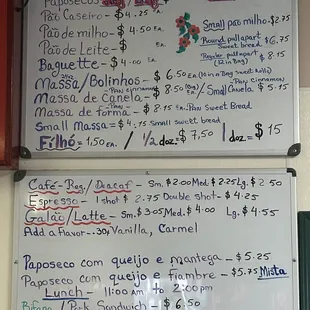 Paposecos
Pão Caseiro - $4.25 EA.
Pão de milho - $4.50 EA. Small pão milho - $2.75
Pão de Leite - $ EA. Round pullapart Sweet bread $6.75
Baguette - $4.00 EA Regular pullapart $8.15
(12 in Bag)
Massa/Bolinhos - $6.50 EA (10 in a Bag Sweet Rolls)
Massa de Canela - $8.50 / Small Canela $5.15
Massa de forma - $8.15 EA. Pan Sweet Bread
Small Massa = $4.15 Small sweet bread
Filhó = 1.50 EA. / 1/2 doz = $7.50 1 doz = $15
Café - Reg./Decaf - Sm. $2.00 Med. $2.25 Lg. $2.50
Espresso - 1 shot $2.75 Double shot - $4.25
Galão/Latte - Sm. $3.05 Med. $4.00 Lg. $4.55
Add a Flavor - .30¢ Vanilla, Carmel
Paposeco com queijo e manteiga - $5.25
Paposeco com queijo e fiambre - $5.75 Mista
Lunch - 11:00 AM to 2:00 pm
Bifana / Pork Sandwich - $6.50